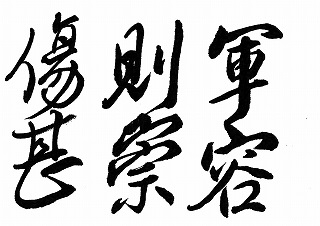 軍容
則崇
傷甚